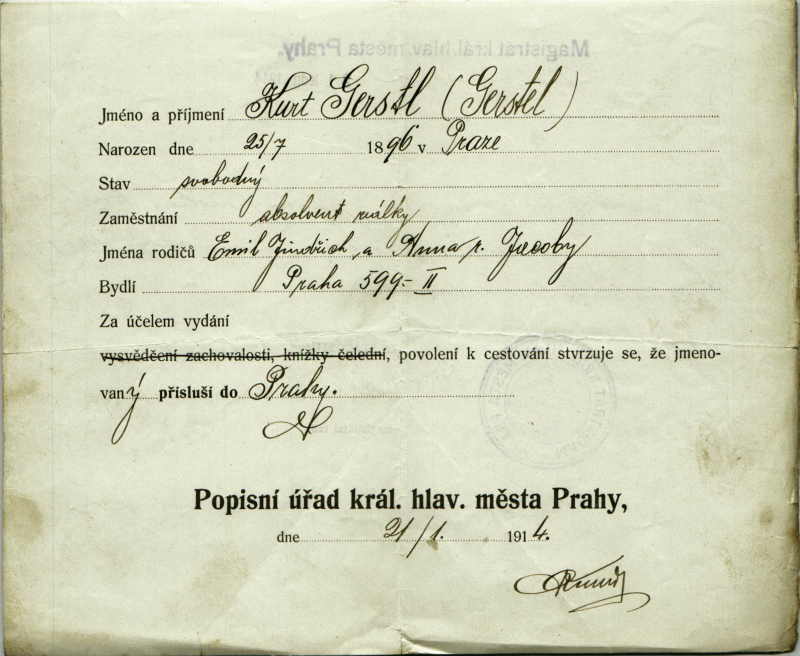 Magistrát král. hlav. města Prahy.
Jméno a příjmení Kurt Gerstl (Gerstel)
Narozen dne 25/7 1896 v Praze
Stav svobodný
Zaměstnání absolvent reálky
Jména rodičů Emil Jindřich a Anna r. Jacoby
Bydlí Praha 599.- II
Za účelem vydání
vysvědčení zachovalosti, knížky čelední, povolení k cestování stvrzuje se, že jmeno-
vaný přísluší do Prahy.
Popisní úřad král. hlav. města Prahy,
dne 21/1. 1914.